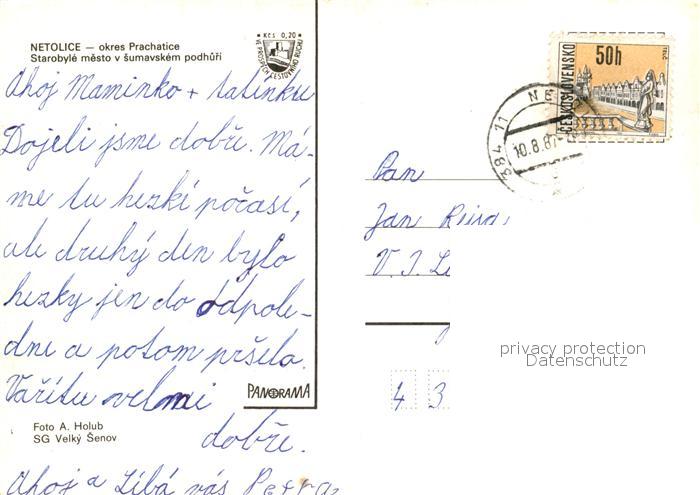 NETOLICE — okres Prachatice
Starobylé město v šumavském podhůří
Kčs 0,20
VE PROSPĚCH CESTOVNÍHO RUCHU
Ahoj Maminko + tatínku
Dojeli jsme dobře. Má-
me tu hezkí počasí,
ale druhý den bylo
hezky jen do odpole-
dne a potom pršelo.
Vařítu velmi
dobře.
Ahoj a Líbá vás Petra
PANORAMA
Foto A. Holub
SG Velký Šenov
50h
ČESKOSLOVENSKO
TELČ
384 11 NE
10.8.87
Pan
Jan
V. I. Le
4 3
privacy protection
Datenschutz